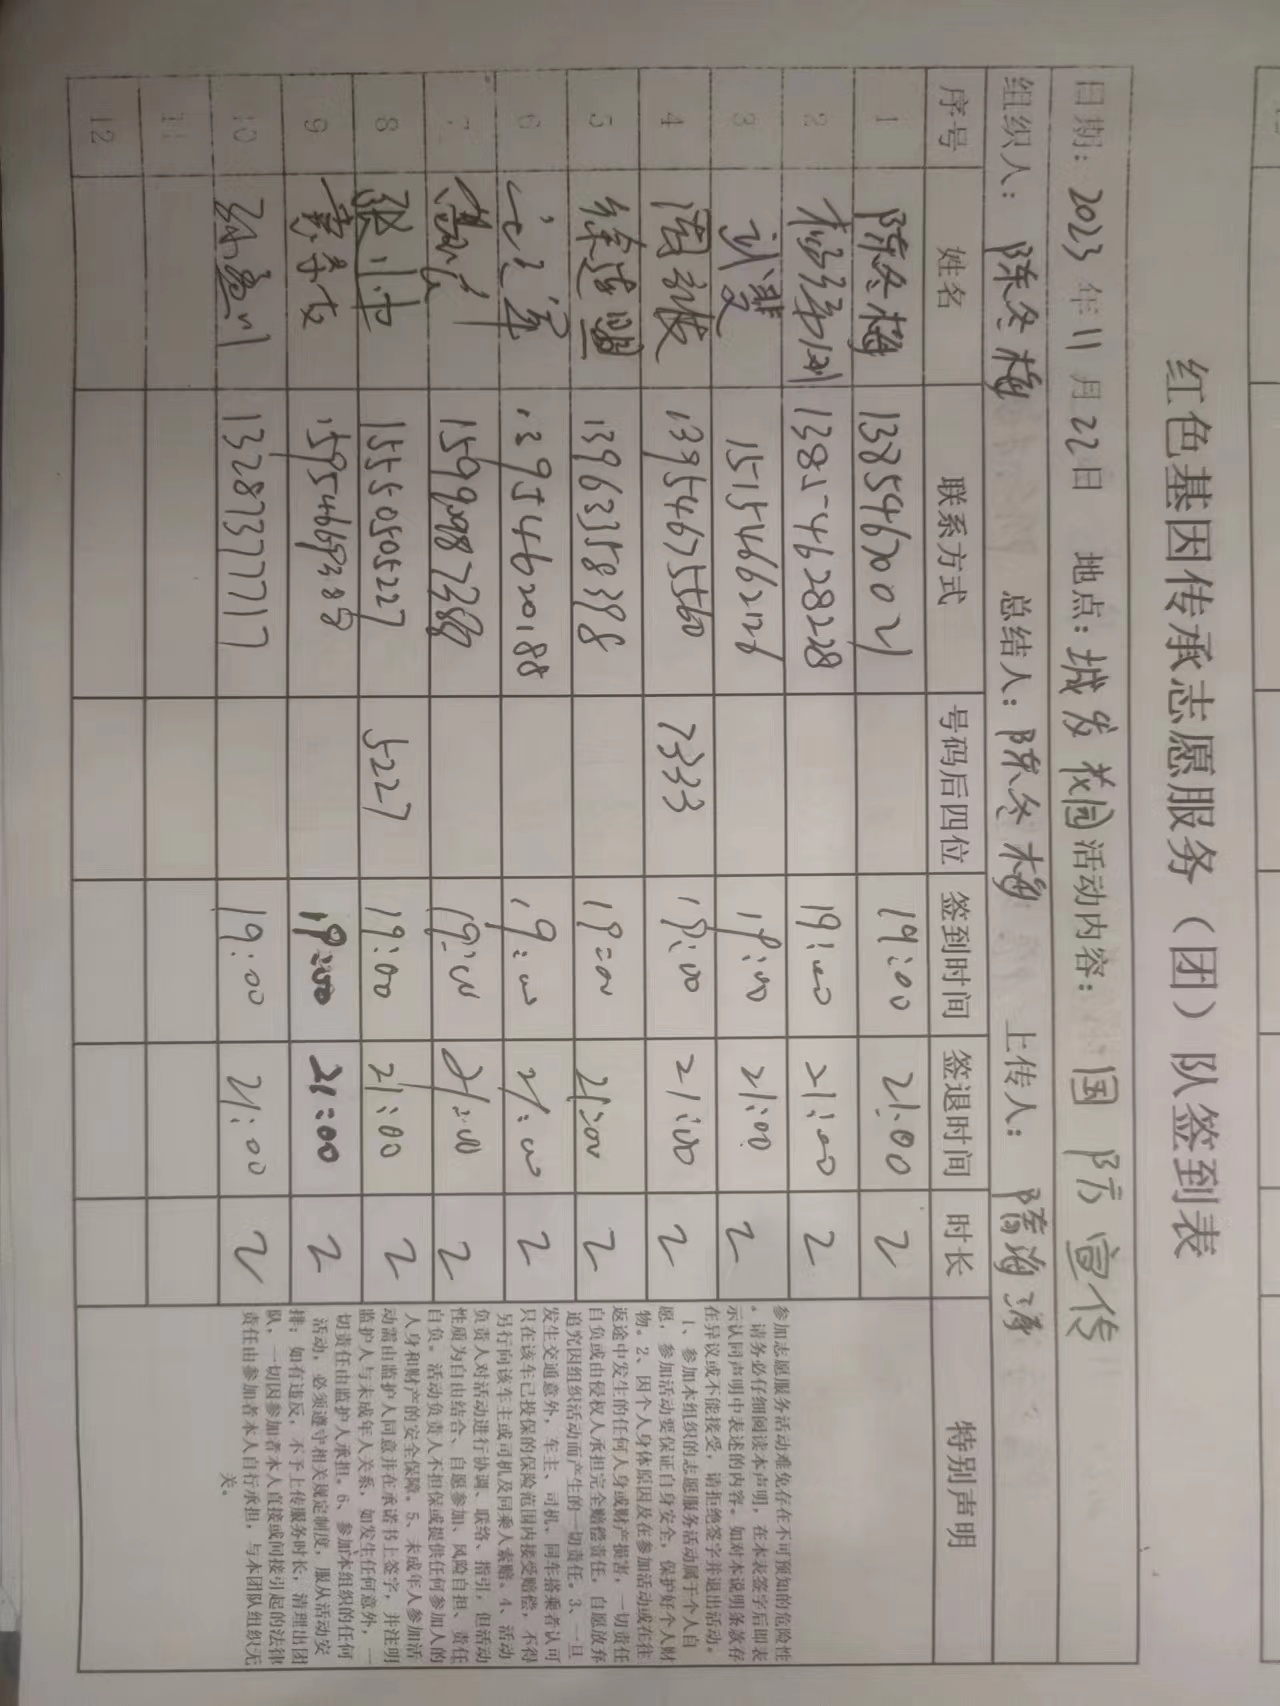 红色基因传承志愿服务（团）队签到表
日期：2023年11月22日 地点：城发花园 活动内容：国防宣传
组织人：陈冬梅 总结人：陈冬梅 上传人：
序号 姓名 联系方式 号码后四位 签到时间 签退时间 时长 特别声明
1 陈冬梅 19:00 21:00 2
2 13854628228 19:00 21:00 2
3 刘斐 15154662126 19:00 21:00 2
4 13954675560 7333 19:00 21:00 2
5 徐建盟 13963358398 19:00 21:00 2
6 13954620188 19:00 21:00 2
7 19:00 21:00 2
8 张小中 15550505227 5227 19:00 21:00 2
9 19:00 21:00 2
10 13287377717 19:00 21:00 2
11
12
参加志愿服务活动难免存在不可预知的危险性
。请务必仔细阅读本声明，在本表签字后即表
示认同声明中表述的内容。如对本说明条款存
在异议或不能接受，请拒绝签字并退出活动。
1、参加本组织的志愿服务活动属于个人自
愿，参加活动要保证自身安全，保护好个人财
物。2、因个人身体原因及在参加活动或在往
返途中发生的任何人身或财产损害，一切责任
自负或由侵权人承担完全赔偿责任，自愿放弃
追究因组织活动而产生的一切责任。3、一旦
发生交通意外，车主、司机、同车搭乘者认可
只在该车已投保的保险范围内接受赔偿，不得
另行向该车主或司机及同乘人索赔。4、活动
负责人对活动进行协调、联络、指引，但活动
性质为自由结合、自愿参加、风险自担、责任
自负。活动负责人不担保或提供任何参加人的
人身和财产的安全保障。5、未成年人参加活
动需由监护人同意并在承诺书上签字，并注明
监护人与未成年人关系，如发生任何意外，一
切责任由监护人承担。6、参加本组织的任何
活动，必须遵守相关规定制度，服从活动安
排；如有违反，不予上传服务时长，清理出团
队，一切因参加者本人直接或间接引起的法律
责任由参加者本人自行承担，与本团队组织无
关。